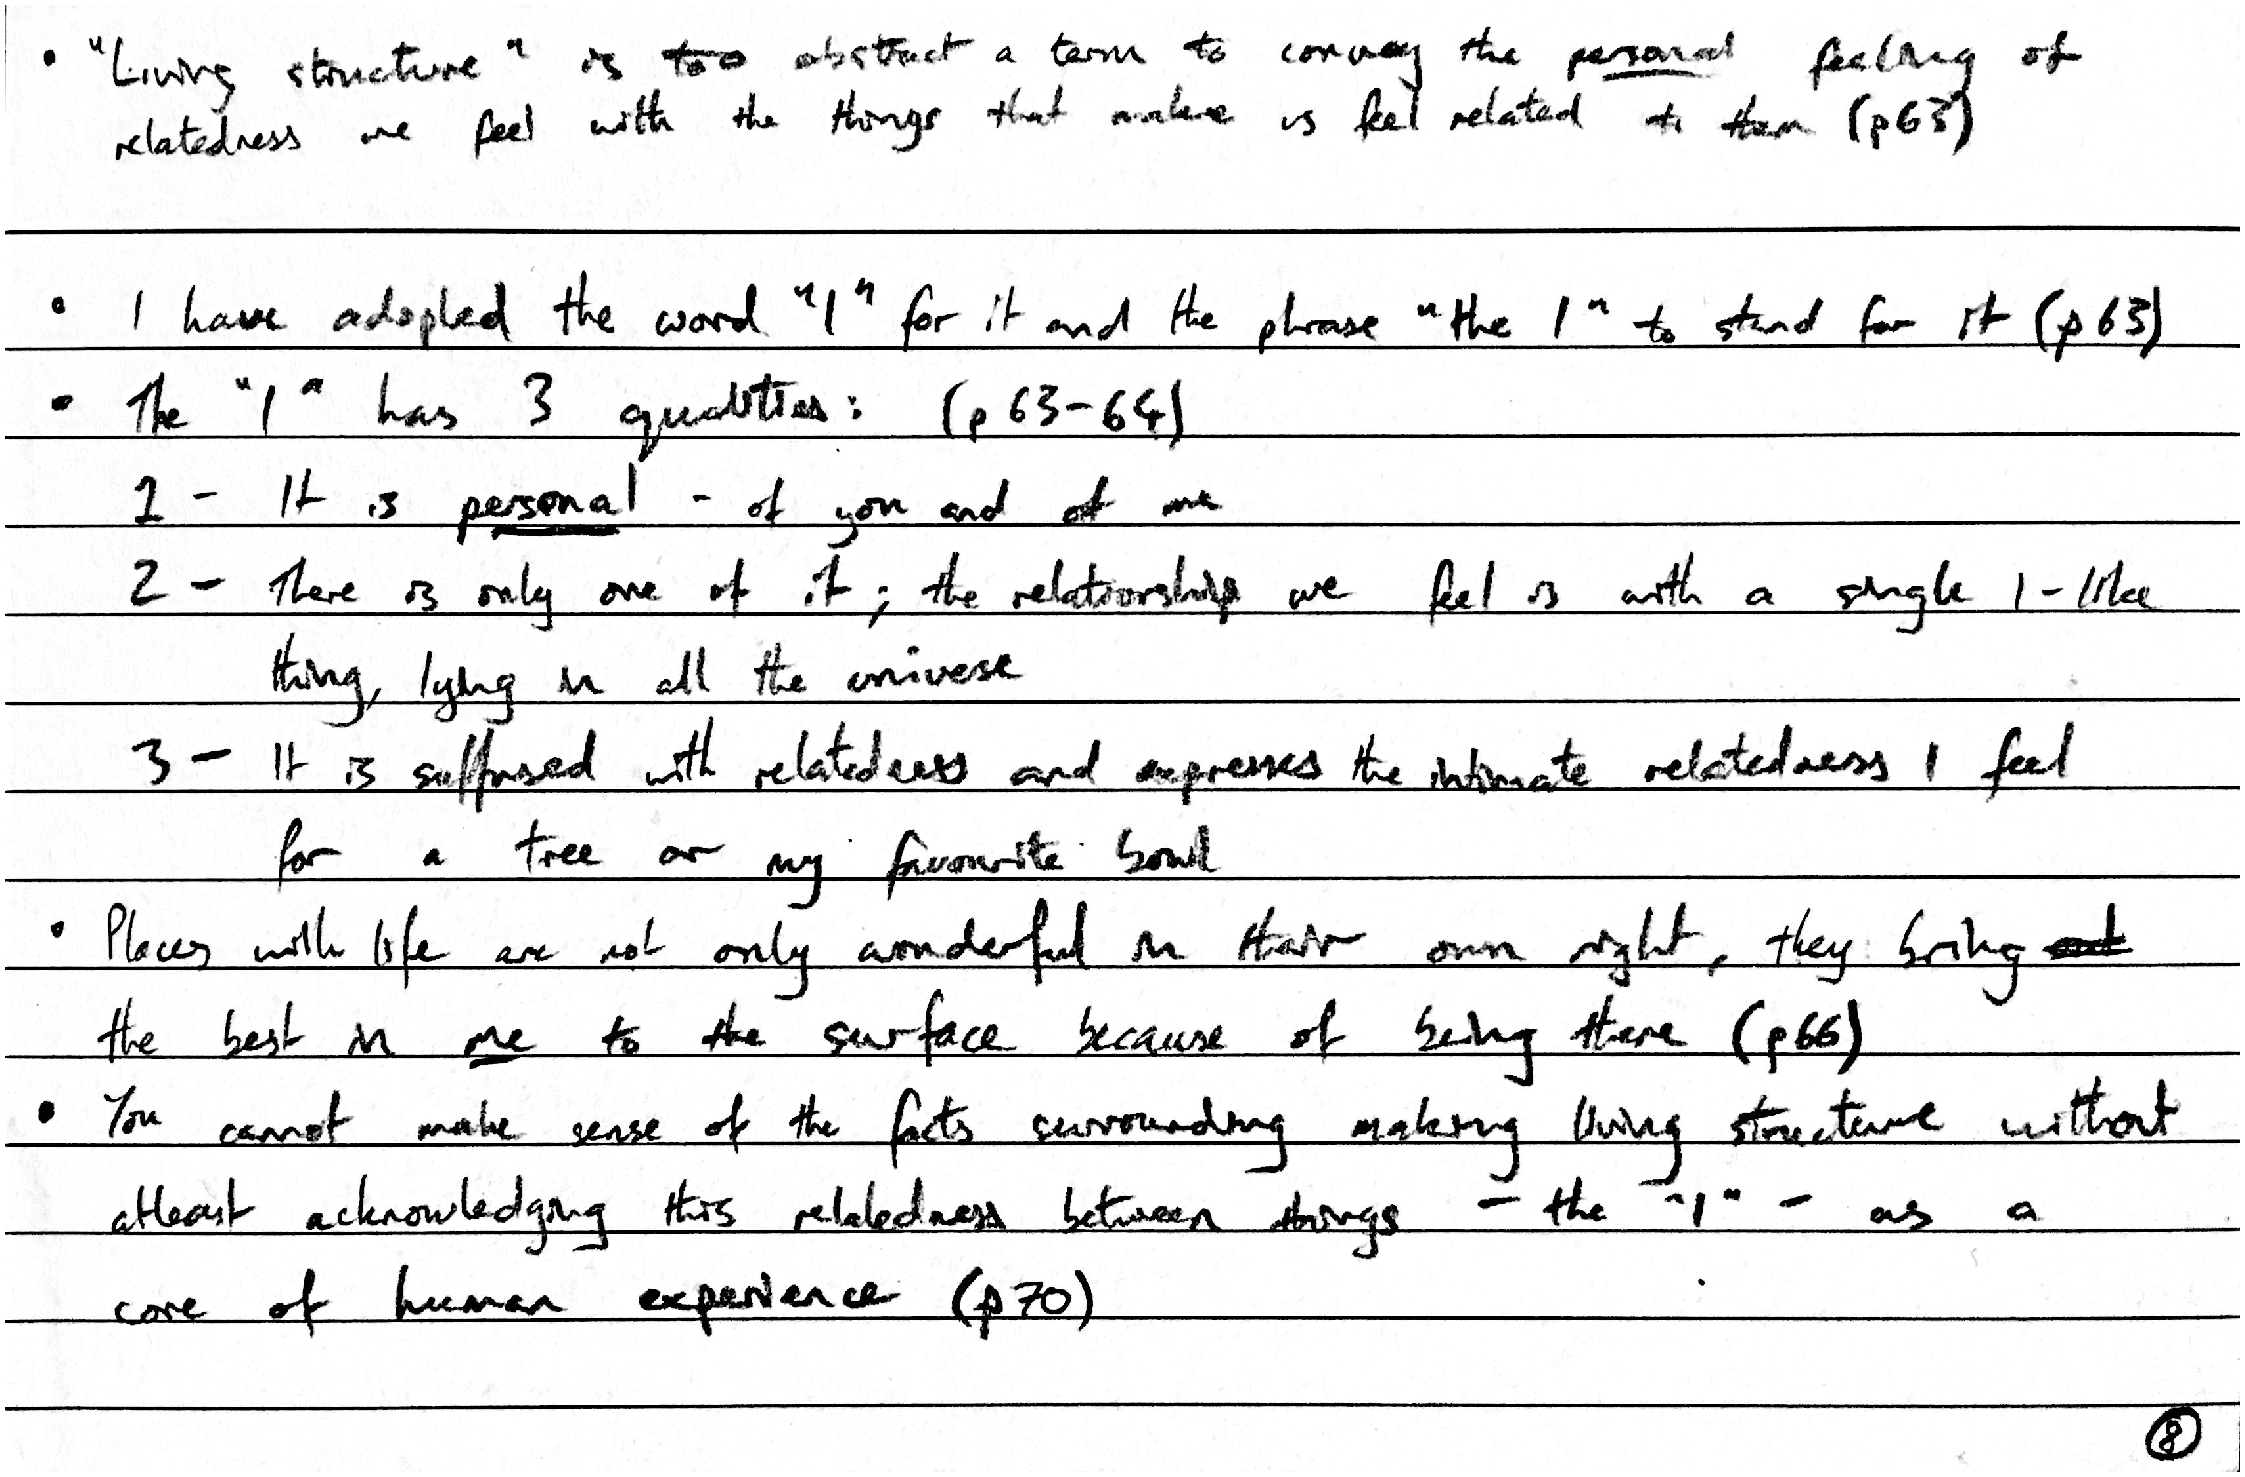 • "Living structure" is too abstract a term to convey the personal feeling of
relatedness we feel with the things that make us feel related to them (p63)
• I have adopted the word "I" for it and the phrase "the I" to stand for it (p63)
• The "I" has 3 qualities: (p63-64)
1 - It is personal - of you and of me
2 - There is only one of it; the relationship we feel is with a single I-like
thing, lying in all the universe
3 - It is suffused with relatedness and expresses the intimate relatedness I feel
for a tree or my favourite bowl
• Places with life are not only wonderful in their own right, they bring out
the best in me to the surface because of being there (p66)
• You cannot make sense of the facts surrounding making living structure without
atleast acknowledging this relatedness between things - the "I" - as a
core of human experience (p70)
8